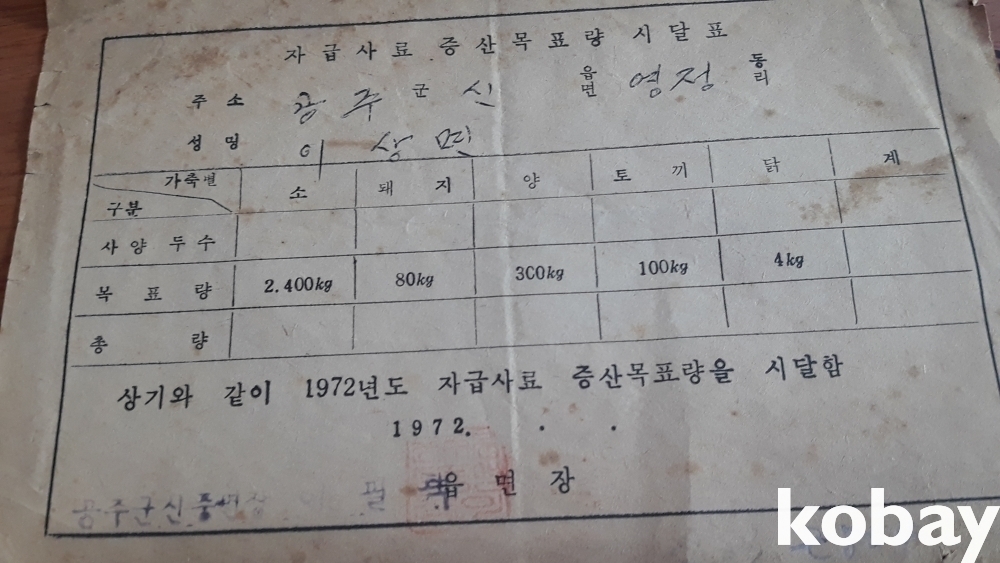 자급사료 증산목표량 시달표
주소 공주군 신 읍면 영정 동리
성명 이상면
가축별 소 돼지 양 토끼 닭 계
구분
사양두수
목표량 2.400kg 80kg 300kg 100kg 4kg
총량
상기와 같이 1972년도 자급사료 증산목표량을 시달함
1972. . .
공주군신풍면장 필 읍면장
kobay